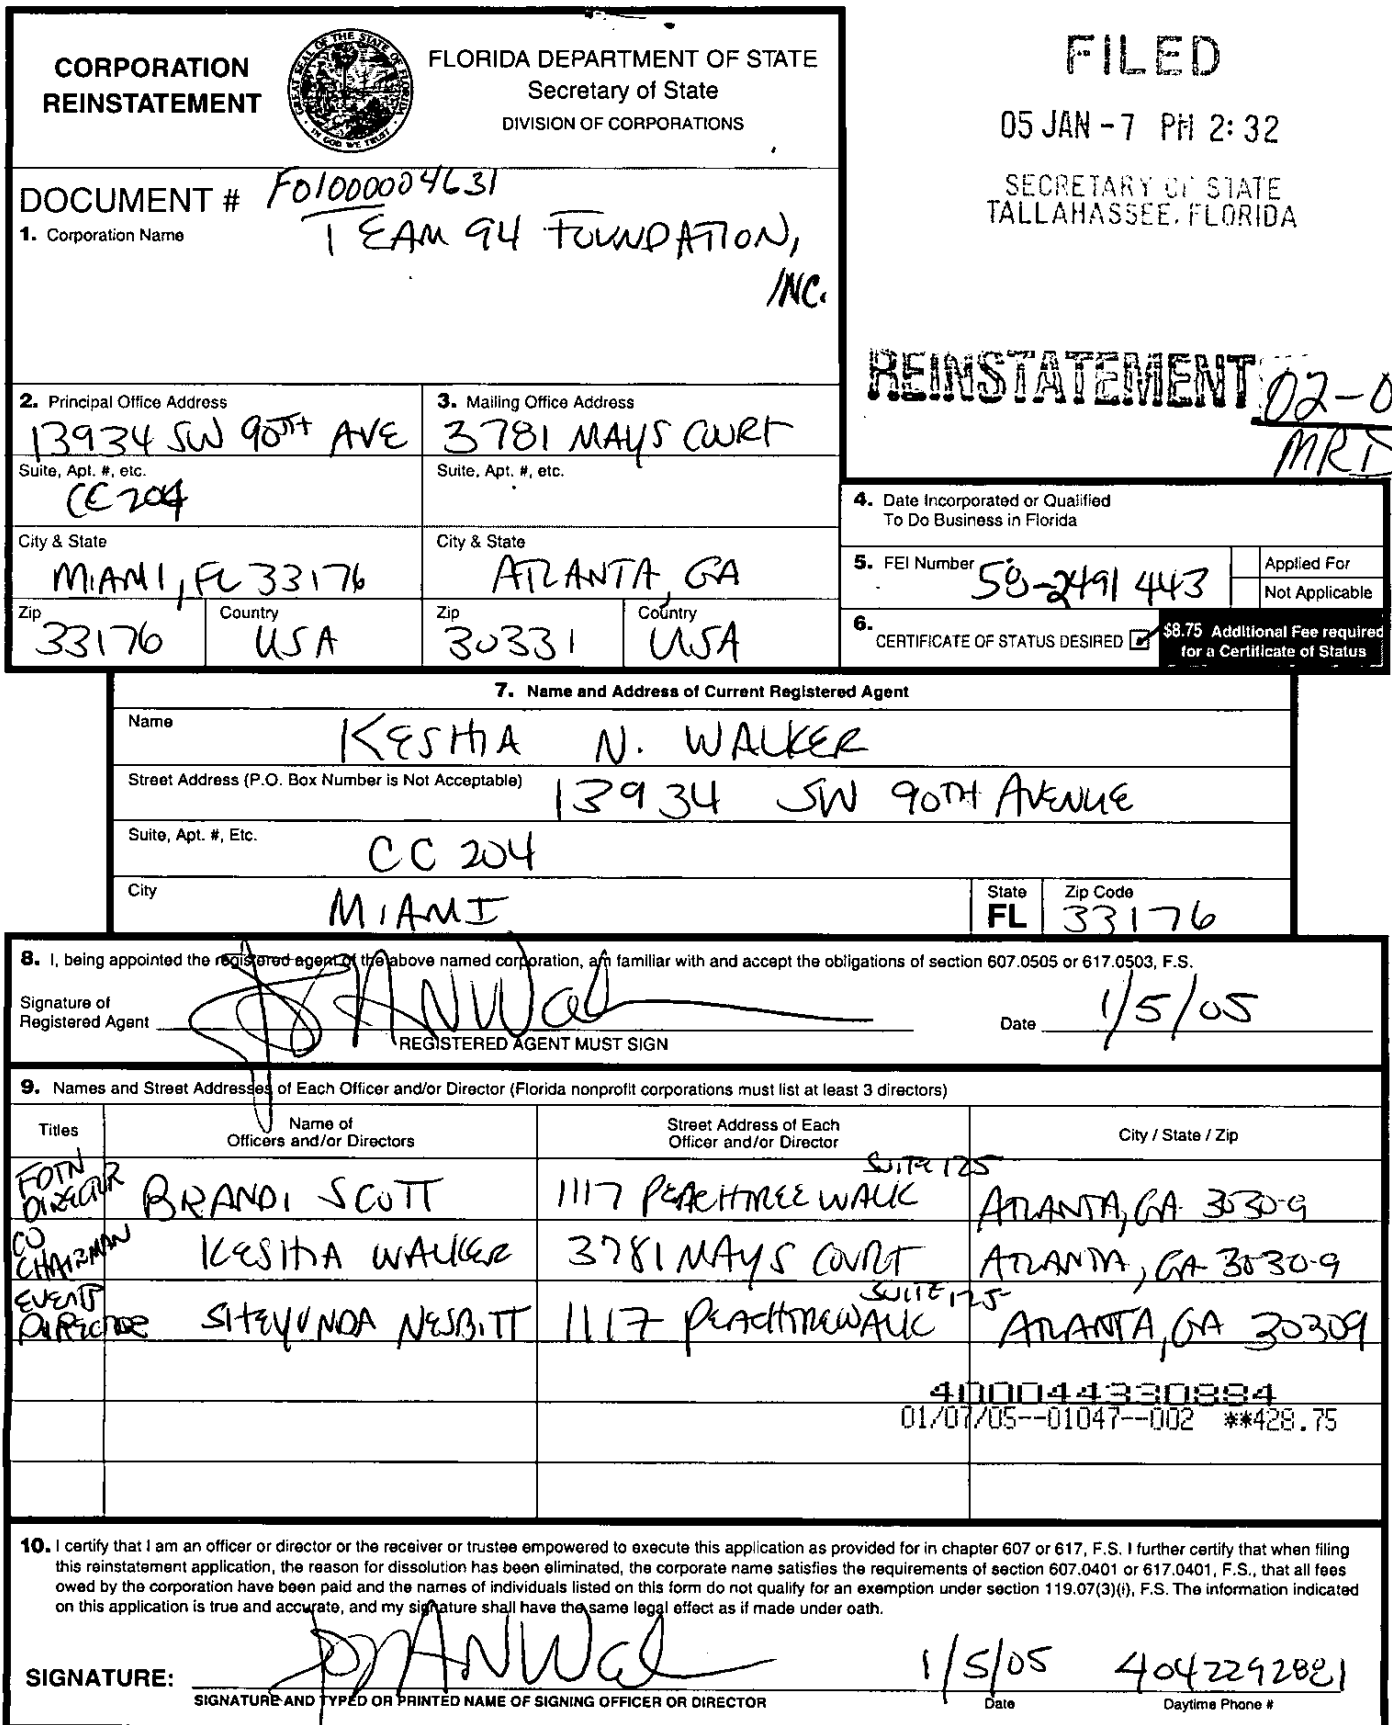 CORPORATION
REINSTATEMENT
GREAT SEAL OF THE STATE OF FLORIDA
IN GOD WE TRUST
FLORIDA DEPARTMENT OF STATE
Secretary of State
DIVISION OF CORPORATIONS
FILED
05 JAN -7 PM 2:32
SECRETARY OF STATE
TALLAHASSEE, FLORIDA
DOCUMENT # F01000004631
1. Corporation Name
TEAM 94 FOUNDATION,
INC.
REINSTATEMENT 02-0
MRD
2. Principal Office Address
13934 SW 90TH AVE
Suite, Apt. #, etc.
CC 204
City & State
MIAMI, FL 33176
Zip
33176
Country
USA
3. Mailing Office Address
3781 MAYS COURT
Suite, Apt. #, etc.
City & State
ATLANTA, GA
Zip
30331
Country
USA
4. Date Incorporated or Qualified
To Do Business in Florida
5. FEI Number 58-2491443
Applied For
Not Applicable
6. CERTIFICATE OF STATUS DESIRED
$8.75 Additional Fee required
for a Certificate of Status
7. Name and Address of Current Registered Agent
Name
KESHIA N. WALKER
Street Address (P.O. Box Number is Not Acceptable) 13934 SW 90TH AVENUE
Suite, Apt. #, Etc.
CC 204
City
MIAMI
State
FL
Zip Code
33176
8. I, being appointed the registered agent of the above named corporation, am familiar with and accept the obligations of section 607.0505 or 617.0503, F.S.
Signature of
Registered Agent
REGISTERED AGENT MUST SIGN
Date 1/5/05
9. Names and Street Addresses of Each Officer and/or Director (Florida nonprofit corporations must list at least 3 directors)
Titles
Name of
Officers and/or Directors
Street Address of Each
Officer and/or Director
City / State / Zip
FOTN DIRECTOR BRANDI SCOTT 1117 PEACHTREE WALK SUITE 125 ATLANTA, GA 30309
CO CHAIRMAN KESHIA WALKER 3781 MAYS COURT ATLANTA, GA 30309
EVENTS DIRECTOR SHEYUNDA NESBITT 1117 PEACHTREWALK SUITE 125 ATLANTA, GA 30309
400044330884
01/07/05--01047--002 **428.75
10. I certify that I am an officer or director or the receiver or trustee empowered to execute this application as provided for in chapter 607 or 617, F.S. I further certify that when filing
this reinstatement application, the reason for dissolution has been eliminated, the corporate name satisfies the requirements of section 607.0401 or 617.0401, F.S., that all fees
owed by the corporation have been paid and the names of individuals listed on this form do not qualify for an exemption under section 119.07(3)(i), F.S. The information indicated
on this application is true and accurate, and my signature shall have the same legal effect as if made under oath.
SIGNATURE:
SIGNATURE AND TYPED OR PRINTED NAME OF SIGNING OFFICER OR DIRECTOR
1/5/05
Date
4042292881
Daytime Phone #